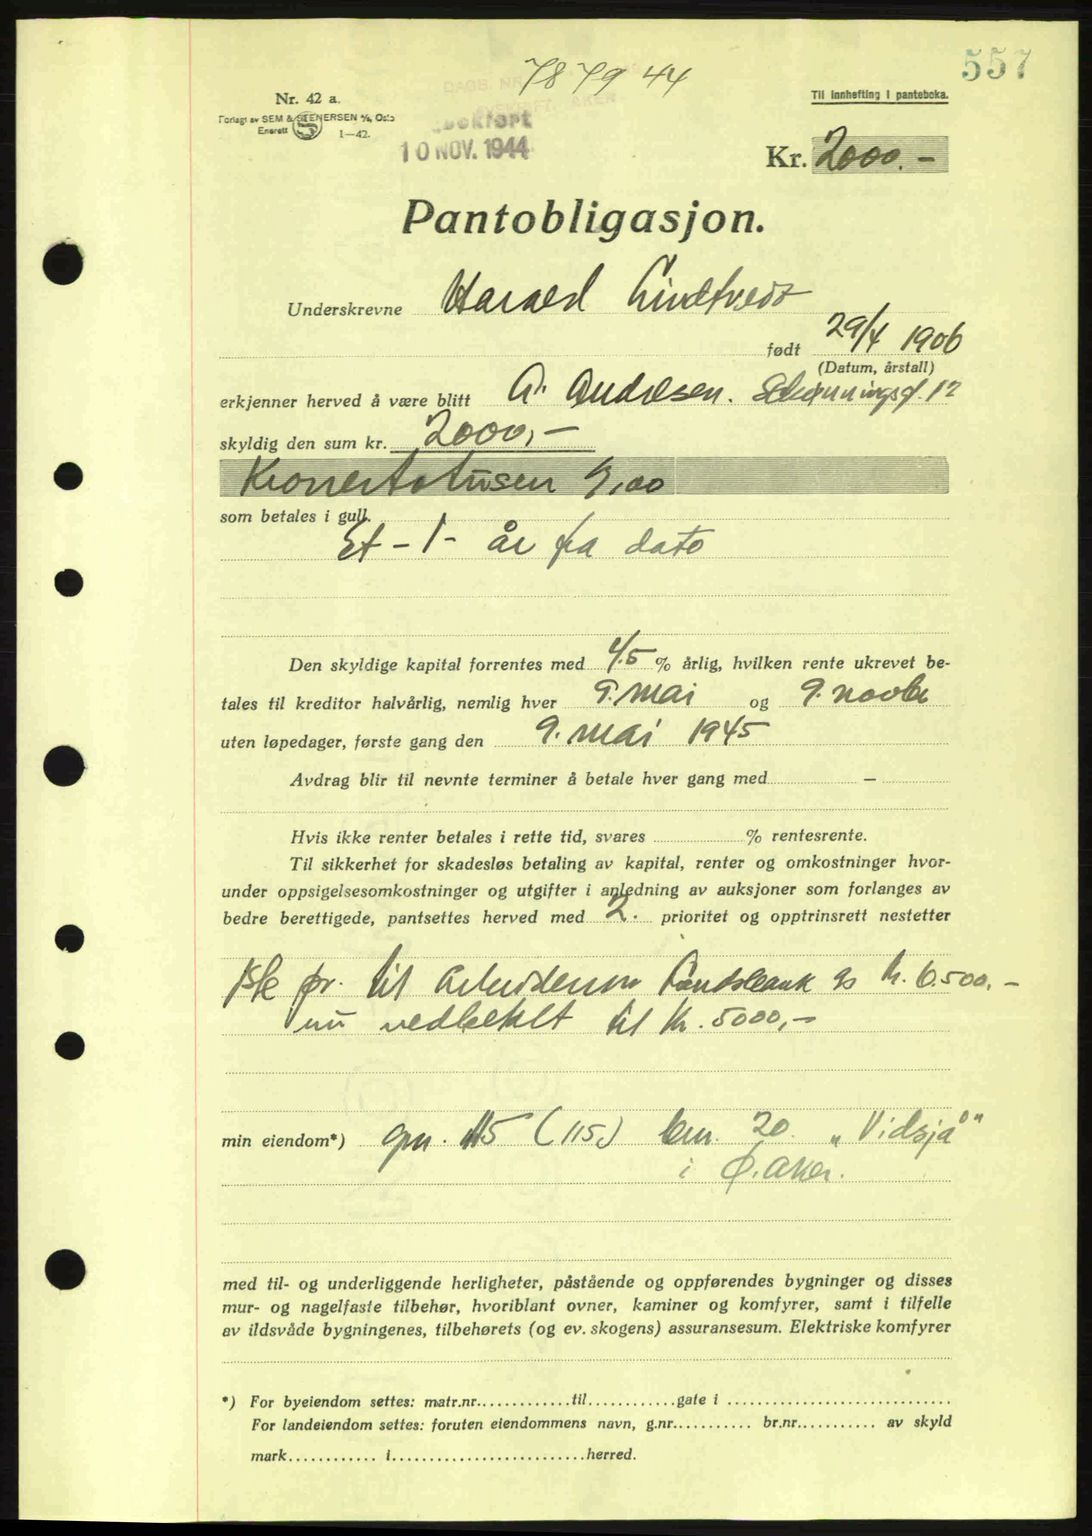 557
7879 44
DAGB. NR.
AKER
Nr. 42 a.
Til innhefting i panteboka.
Forlagt av SEM & STENERSEN A/S, Oslo
Enerett S 1—42.
Bokført
10 NOV. 1944
Kr. 2000.-
Pantobligasjon.
Underskrevne Harald Lindtvedt
født 29/4 1906
(Datum, årstall)
erkjenner herved å være blitt A. Andresen. 12
skyldig den sum kr. 2000,-
Kronertotusen 0/00
som betales i gull.
Et - 1 - år fra dato
Den skyldige kapital forrentes med 4.5 % årlig, hvilken rente ukrevet be-
tales til kreditor halvårlig, nemlig hver 9. mai og 9. novbr
uten løpedager, første gang den 9. mai 1945
Avdrag blir til nevnte terminer å betale hver gang med —
Hvis ikke renter betales i rette tid, svares % rentesrente.
Til sikkerhet for skadesløs betaling av kapital, renter og omkostninger hvor-
under oppsigelsesomkostninger og utgifter i anledning av auksjoner som forlanges av
bedre berettigede, pantsettes herved med 2. prioritet og opptrinsrett nestetter
1ste pr. til Arbeidernes Landsbank på kr. 6.500.-
nu nedbetalt til kr. 5000,-
min eiendom*) gnr. 115 (115) bnr. 20. „Vidsjå"
i Ø. Aker.
med til- og underliggende herligheter, påstående og oppførendes bygninger og disses
mur- og nagelfaste tilbehør, hvoriblant ovner, kaminer og komfyrer, samt i tilfelle
av ildsvåde bygningenes, tilbehørets (og ev. skogens) assuransesum. Elektriske komfyrer
*) For byeiendom settes: matr.nr.............til............gate i ..............................
For landeiendom settes: foruten eiendommens navn, g.nr........... br.nr........... av skyld
mark............ i..........................herred.